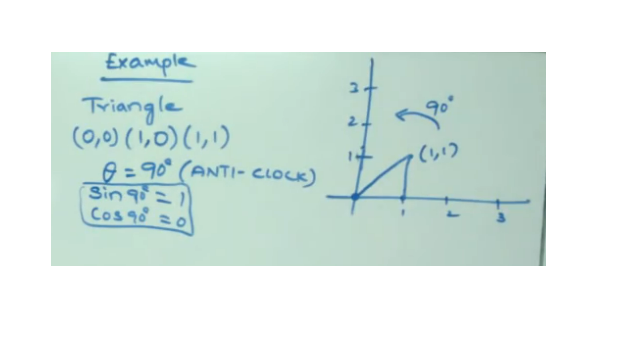 Example
Triangle
(0,0) (1,0) (1,1)
θ = 90° (ANTI-CLOCK)
Sin 90° = 1
Cos 90° = 0
3
2
1
90°
(1,1)
1
2
3